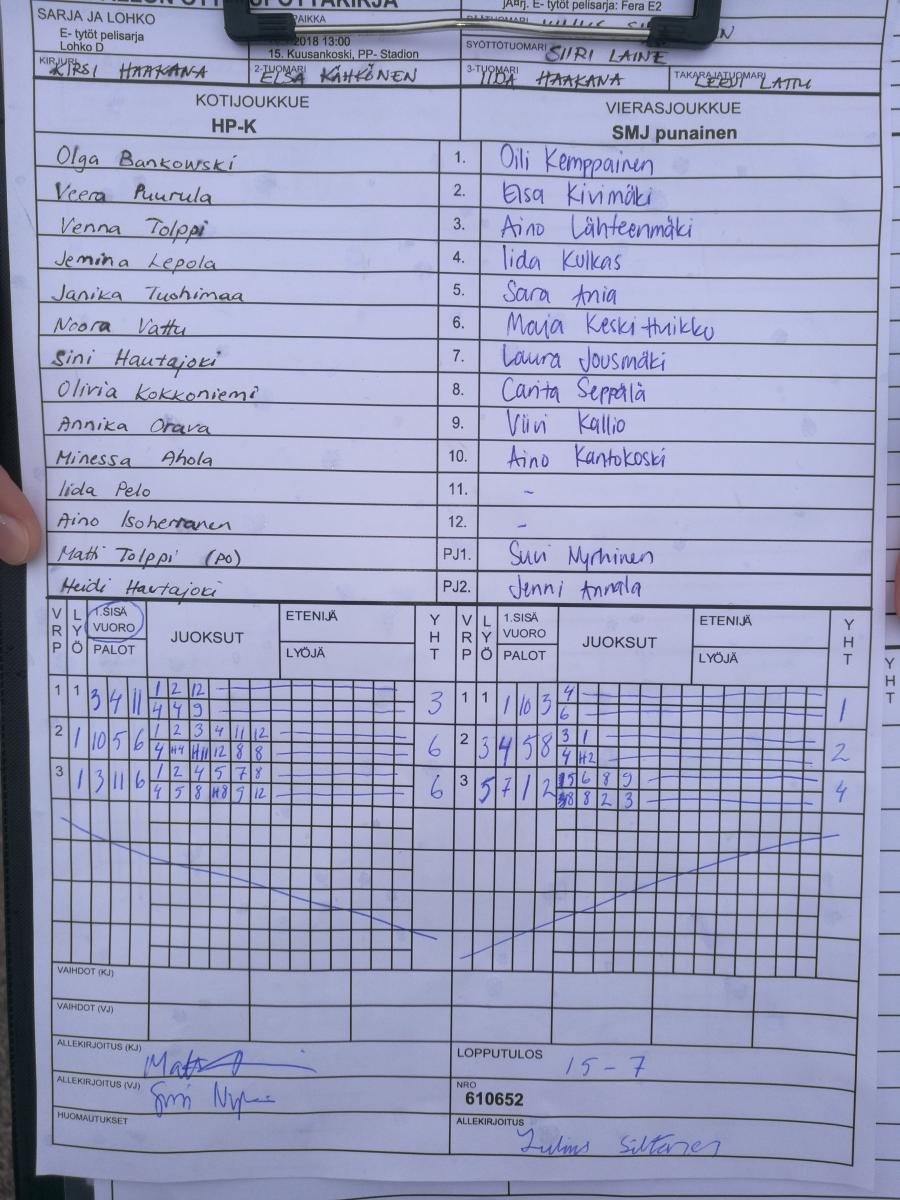 SARJA JA LOHKO
PAIKKA
Järj. E- tytöt pelisarja: Fera E2
E- tytöt pelisarja
Lohko D
2018 13:00
15. Kuusankoski, PP- Stadion
SYÖTTÖTUOMARI SIIRI LAINE
KIRJURI KIRSI HAAKANA
2-TUOMARI ELSA KÄHKÖNEN
3-TUOMARI IIDA HAAKANA
TAKARAJATUOMARI LEEVI LATTU
KOTIJOUKKUE
HP-K
VIERASJOUKKUE
SMJ punainen
Olga Bankowski 1. Oili Kemppainen
Veera Puurula 2. Elsa Kivimäki
Venna Tolppi 3. Aino Lähteenmäki
Jemina Lepola 4. Iida Kulkas
Janika Tuohimaa 5. Sara Ania
Noora Vattu 6. Maija Keski-Huikku
Sini Hautajoki 7. Laura Jousmäki
Olivia Kokkoniemi 8. Carita Seppälä
Annika Orava 9. Viivi Kallio
Minessa Ahola 10. Aino Kantokoski
Iida Pelo 11. -
Aino Isoherranen 12. -
Matti Tolppi (PO) PJ1. Suvi Nyrhinen
Heidi Hautajoki PJ2. Jenni Annala
VRP LYÖ 1.SISÄ VUORO PALOT JUOKSUT ETENIJÄ LYÖJÄ YHT VRP LYÖ 1.SISÄ VUORO PALOT JUOKSUT ETENIJÄ LYÖJÄ YHT
1 1 3 4 11 1 2 12 3 1 1 1 10 3 4 1
4 4 9 6
2 1 10 5 6 1 2 3 4 11 12 6 2 3 4 5 8 3 1 2
4 H4 H11 12 8 8 4 H2
3 1 3 11 6 1 2 4 5 7 8 6 3 5 7 1 2 5 6 8 9 4
4 5 8 H8 9 12 8 8 2 3
VAIHDOT (KJ)
VAIHDOT (VJ)
ALLEKIRJOITUS (KJ)
LOPPUTULOS 15-7
ALLEKIRJOITUS (VJ)
NRO
610652
HUOMAUTUKSET
ALLEKIRJOITUS Julius Siltanen
YHT